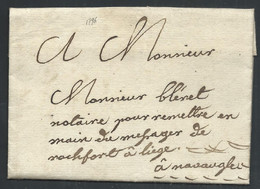 1796
A Monsieur
Monsieur bléret
notaire pour remettre en
main du mesager de
rochfort à liège
à navaugle